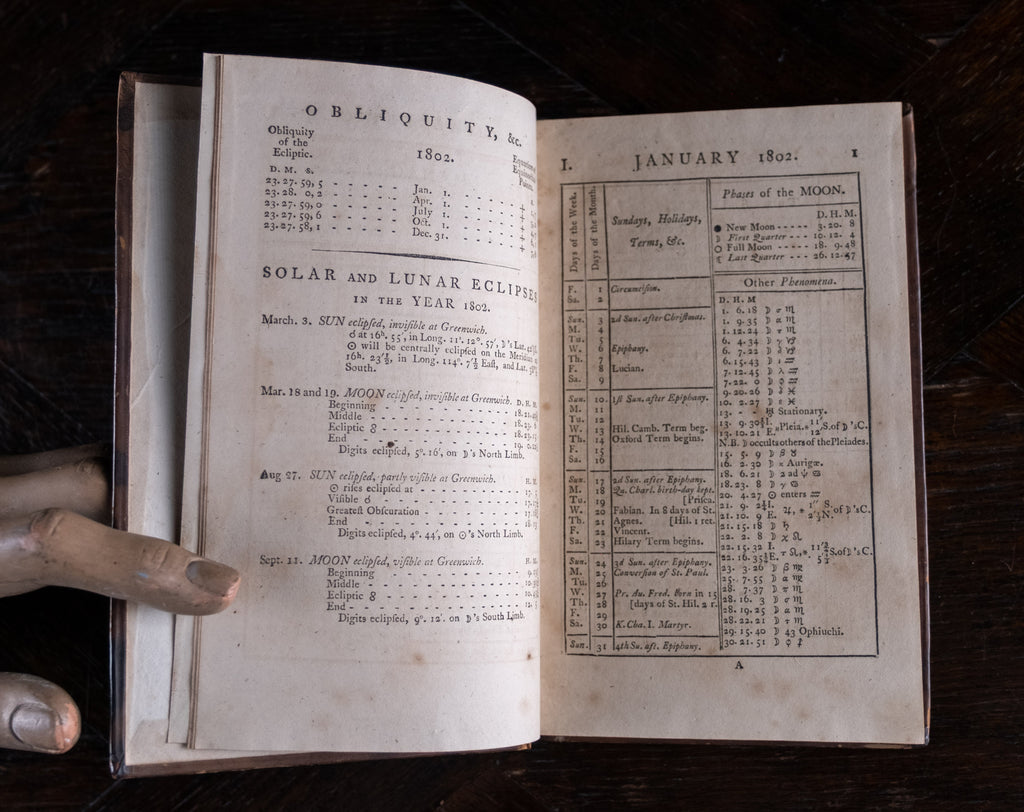 OBLIQUITY, &c.
Obliquity
of the
Ecliptic.
1802.
D. M. s.
23. 27. 59, 5 - - - - - Jan. 1.
23. 28. 0, 2 - - - - - Apr. 1.
23. 27. 59, 0 - - - - - July 1.
23. 27. 59, 6 - - - - - Oct. 1.
23. 27. 58, 1 - - - - - Dec. 31.
SOLAR AND LUNAR ECLIPSES
IN THE YEAR 1802.
March. 3. SUN eclipſed, inviſible at Greenwich.
☌ at 16h. 55′, in Long. 11s. 12°. 57′, ☽'s Lat.
☉ will be centrally eclipſed on the Meridian
16h. 23′½, in Long. 114°. 7′½ Eaſt, and Lat.
South.
Mar. 18 and 19. MOON eclipſed, inviſible at Greenwich. D. H. M.
Beginning - - - - - - - - - - 18.
Middle - - - - - - - - - - 18.
Ecliptic ☍ - - - - - - - - - - 18.
End - - - - - - - - - - 19.
Digits eclipſed, 5°. 16′, on ☽'s North Limb.
Aug 27. SUN eclipſed, partly viſible at Greenwich. H. M.
☉ riſes eclipſed at - - - - - - - - 17.
Viſible ☌ - - - - - - - - 17.
Greateſt Obſcuration - - - - - - - - 17.
End - - - - - - - - 18.
Digits eclipſed, 4°. 44′, on ☉'s North Limb.
Sept. 11. MOON eclipſed, viſible at Greenwich. H. M.
Beginning - - - - - - - - 9.
Middle - - - - - - - - 10.
Ecliptic ☍ - - - - - - - - 10.
End - - - - - - - - 12.
Digits eclipſed, 9°. 12′. on ☽'s South Limb.
I. JANUARY 1802. 1
Days of the Week.
Days of the Month.
Sundays, Holidays,
Terms, &c.
Phases of the MOON.
D. H. M.
● New Moon - - - - - 3. 20. 8
☽ Firſt Quarter - - - - 10. 12. 4
○ Full Moon - - - - - 18. 9. 48
☾ Laſt Quarter - - - - 26. 12. 57
F. 1 Circumciſion.
Sa. 2
Sun. 3 2d Sun. after Chriſtmas.
M. 4
Tu. 5
W. 6 Epiphany.
Th. 7
F. 8 Lucian.
Sa. 9
Sun. 10 1ſt Sun. after Epiphany.
M. 11
Tu. 12
W. 13 Hil. Camb. Term beg.
Th. 14 Oxford Term begins.
F. 15
Sa. 16
Sun. 17 2d Sun. after Epiphany.
M. 18 Qu. Charl. birth-day kept.
Tu. 19 [Priſca.
W. 20 Fabian. In 8 days of St.
Th. 21 Agnes. [Hil. 1 ret.
F. 22 Vincent.
Sa. 23 Hilary Term begins.
Sun. 24 3d Sun. after Epiphany.
M. 25 Converſion of St. Paul.
Tu. 26
W. 27 Pr. Au. Fred. born in 15
Th. 28 [days of St. Hil. 2 r.
F. 29
Sa. 30 K. Cha. I. Martyr.
Sun. 31 4th Su. aft. Epiphany.
Other Phenomena.
D. H. M
1. 6. 18 ☽ σ ♏
1. 9. 35 ☽ α ♏
1. 12. 24 ☽ τ ♏
6. 4. 34 ☽ γ ♑
6. 7. 22 ☽ δ ♑
6. 15. 43 ☽ ι ♒
7. 12. 45 ☽ λ ♒
7. 22. 0 ☽ φ ♒
9. 20. 26 ☽ ♓
10. 2. 27 ☽ ♓
13. - ♅ Stationary.
13. 9. 30½ I.
13. 10. 21 E. Pleia. S. of ☽'s C.
N.B. ☽ occults others of the Pleiades.
15. 5. 9 ☽ β ♉
16. 2. 30 ☽ Aurigæ.
18. 6. 21 ☽ 2 ad ψ ♋
18. 23. 8 ☽ ♋
20. 4. 27 ☉ enters ♒
21. 9. 2½ I.
21. 10. 9 E. ♃, N. of ☽'s C.
21. 15. 18 ☽ ♄
22. 2. 8 ☽ χ ♌
22. 15. 32 I.
22. 16. 35½ E. τ ♌, S. of ☽'s C.
23. 3. 26 ☽ β ♍
25. 7. 55 ☽ α ♍
28. 7. 37 ☽ π ♏
28. 16. 3 ☽ σ ♏
28. 19. 25 ☽ α ♏
28. 22. 21 ☽ τ ♏
29. 15. 40 ☽ 43 Ophiuchi.
30. 21. 51 ☽ φ ♐
A